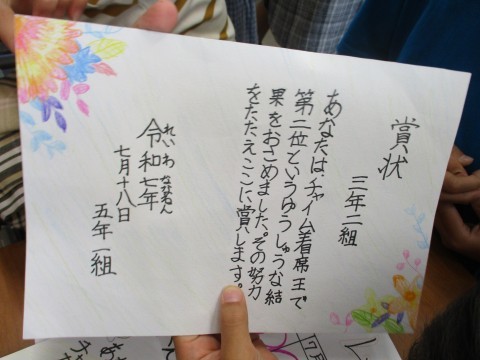 賞状
三年二組
あなたは、チャイム着席王で
第二位というゆうしゅうな結
果をおさめました。その努力
をたたえここに賞します。
令和七年
れいわ
ななねん
七月十八日
五年一組